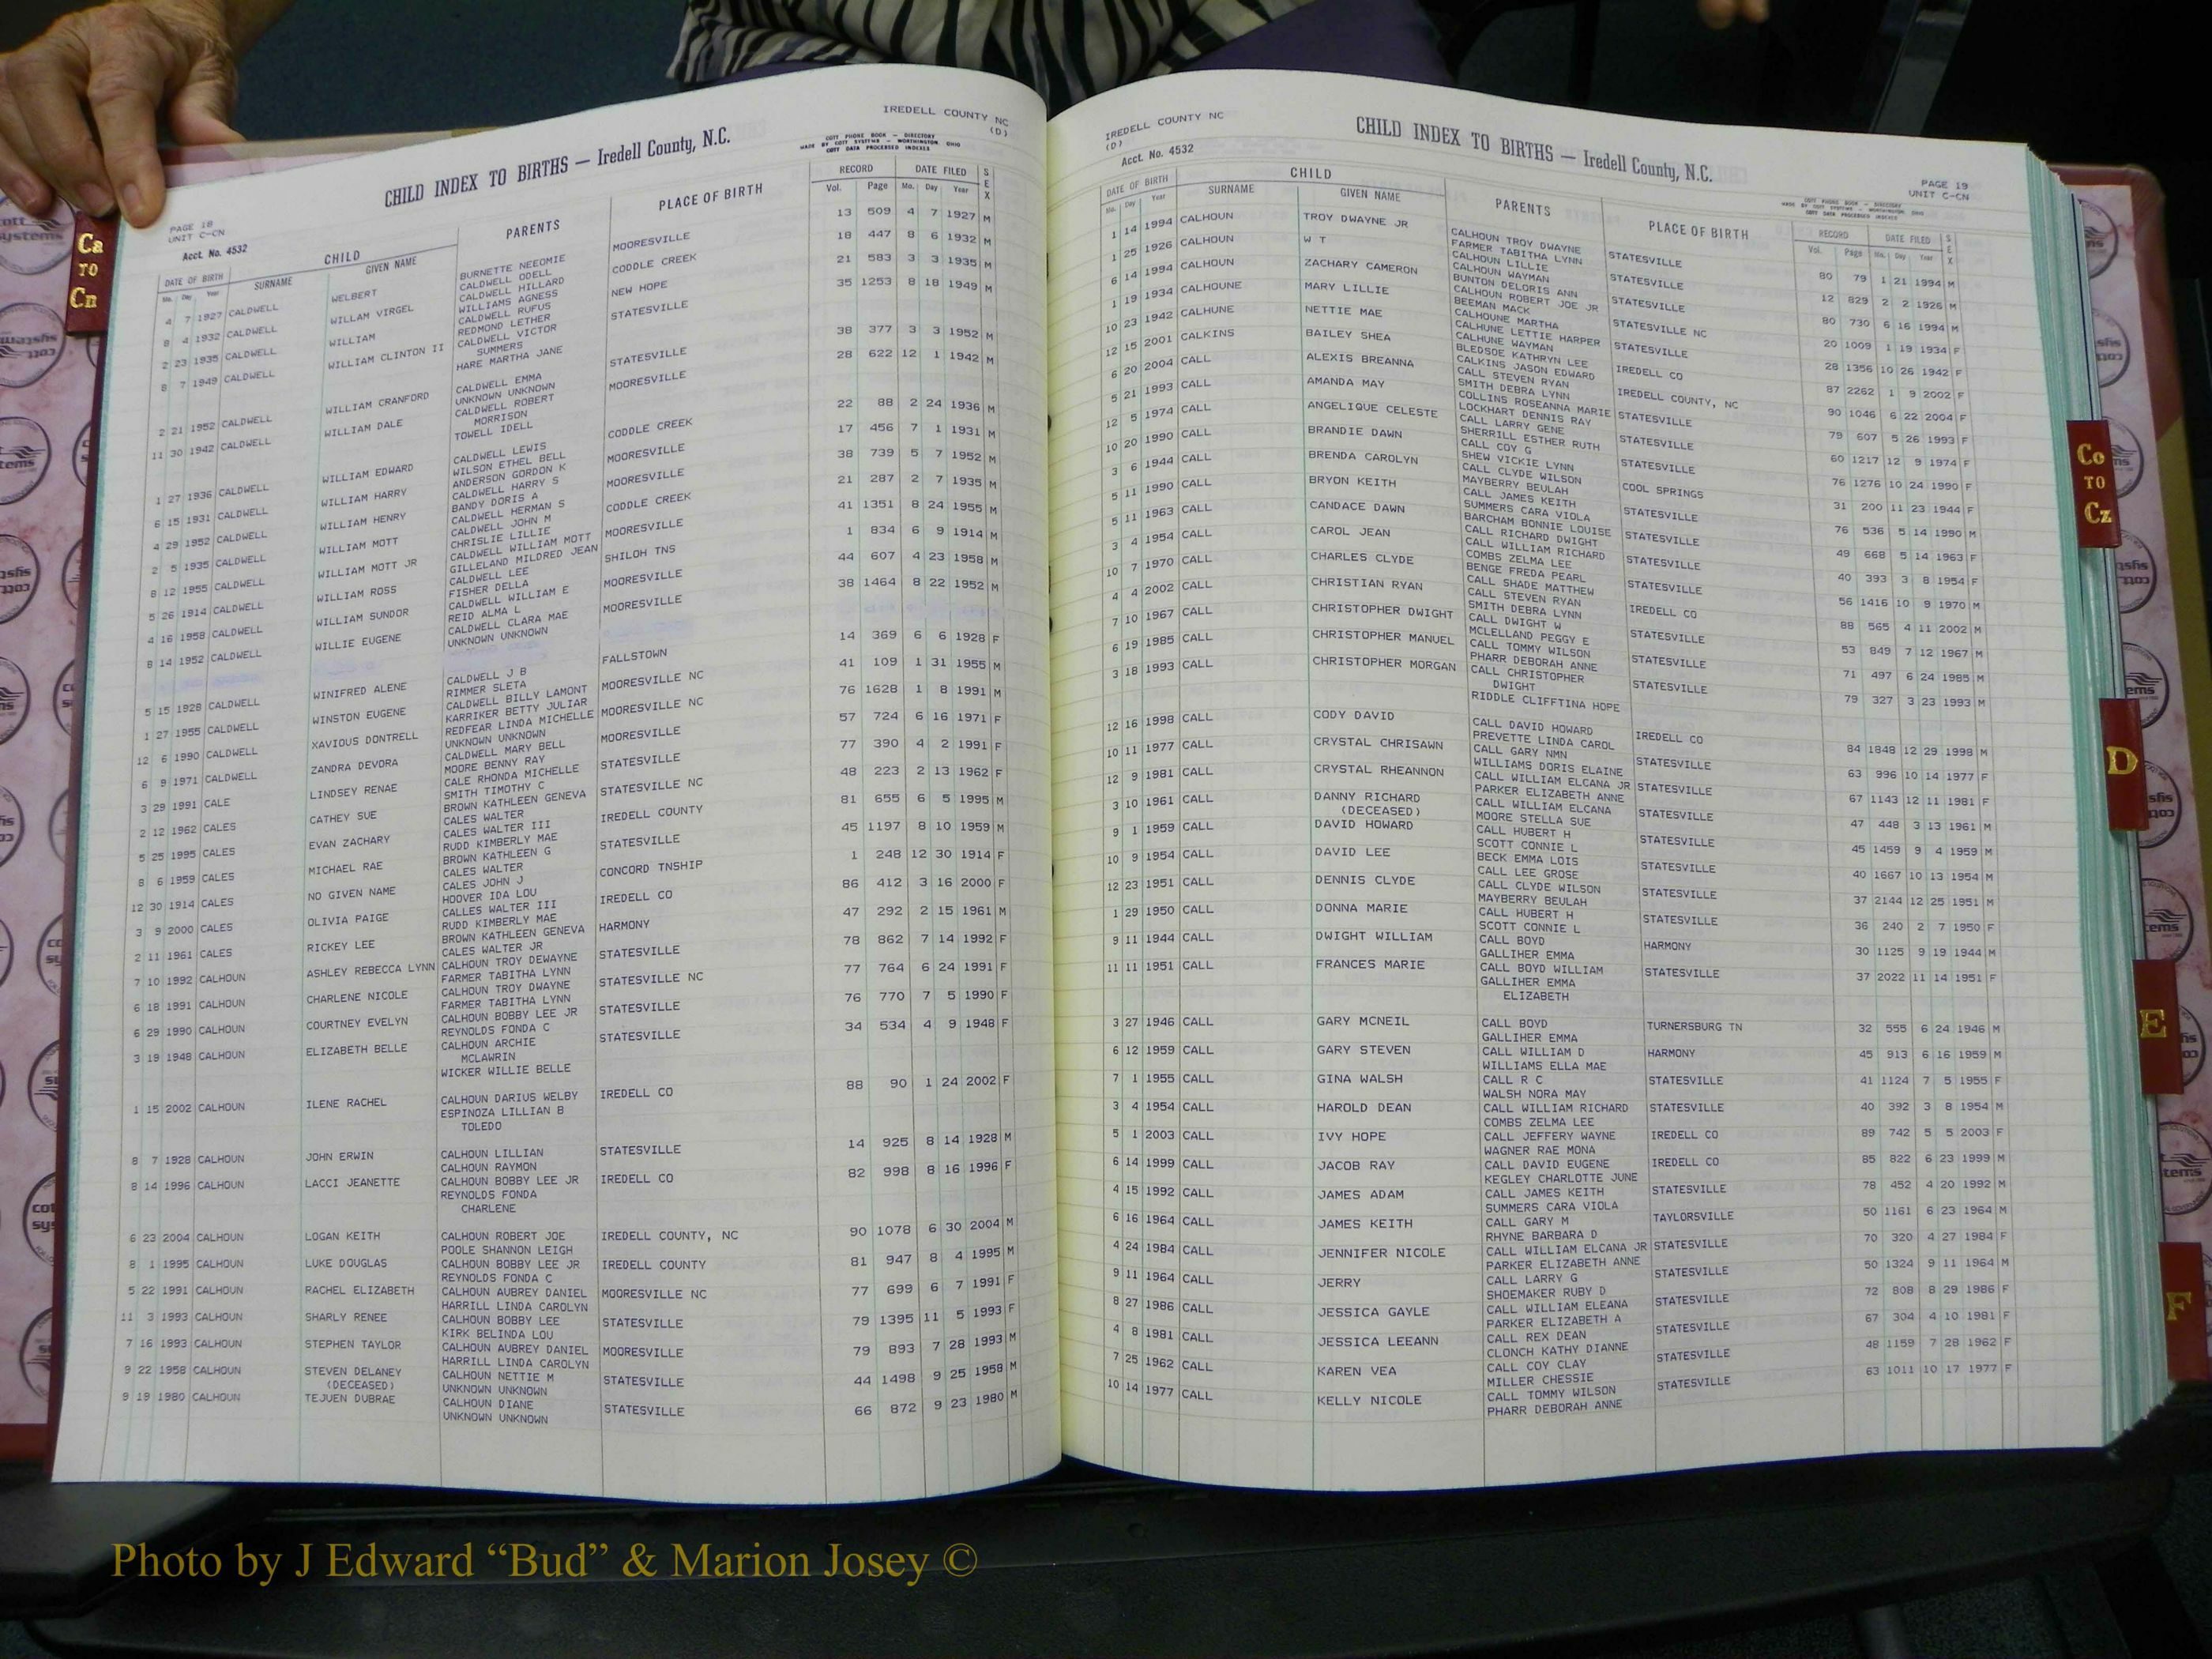 IREDELL COUNTY NC
(D)
CHILD INDEX TO BIRTHS — Iredell County, N.C.
COTT PHONE BOOK — DIRECTORY
MADE BY COTT SYSTEMS — WORTHINGTON, OHIO
COTT DATA PROCESSED INDEXES
PAGE 18
UNIT C-CN
Acct. No. 4532
DATE OF BIRTH CHILD PARENTS PLACE OF BIRTH RECORD DATE FILED SEX
Mo. Day Year SURNAME GIVEN NAME Vol. Page Mo. Day Year
4 7 1927 CALDWELL WELBERT BURNETTE NEEOMIE MOORESVILLE 13 509 4 7 1927 M
CALDWELL ODELL
8 4 1932 CALDWELL WILLAM VIRGEL CALDWELL HILLARD CODDLE CREEK 18 447 8 6 1932 M
WILLIAMS AGNESS
2 23 1935 CALDWELL WILLIAM CALDWELL RUFUS NEW HOPE 21 583 3 3 1935 M
REDMOND LETHER
8 7 1949 CALDWELL WILLIAM CLINTON II CALDWELL VICTOR STATESVILLE 35 1253 8 18 1949 M
SUMMERS
HARE MARTHA JANE
2 21 1952 CALDWELL WILLIAM CRANFORD CALDWELL EMMA STATESVILLE 38 377 3 3 1952 M
UNKNOWN UNKNOWN
11 30 1942 CALDWELL WILLIAM DALE CALDWELL ROBERT MOORESVILLE 28 622 12 1 1942 M
MORRISON
TOWELL IDELL
1 27 1936 CALDWELL WILLIAM EDWARD CALDWELL LEWIS CODDLE CREEK 22 88 2 24 1936 M
WILSON ETHEL BELL
6 15 1931 CALDWELL WILLIAM HARRY ANDERSON GORDON K MOORESVILLE 17 456 7 1 1931 M
CALDWELL HARRY S
4 29 1952 CALDWELL WILLIAM HENRY BANDY DORIS A MOORESVILLE 38 739 5 7 1952 M
CALDWELL HERMAN S
2 5 1935 CALDWELL WILLIAM MOTT CALDWELL JOHN M CODDLE CREEK 21 287 2 7 1935 M
CHRISLIE LILLIE
8 12 1955 CALDWELL WILLIAM MOTT JR CALDWELL WILLIAM MOTT MOORESVILLE 41 1351 8 24 1955 M
GILLELAND MILDRED JEAN
5 26 1914 CALDWELL WILLIAM ROSS CALDWELL LEE SHILOH TNS 1 834 6 9 1914 M
FISHER DELLA
4 16 1958 CALDWELL WILLIAM SUNDOR CALDWELL WILLIAM E MOORESVILLE 44 607 4 23 1958 M
REID ALMA L
8 14 1952 CALDWELL WILLIE EUGENE CALDWELL CLARA MAE MOORESVILLE 38 1464 8 22 1952 M
UNKNOWN UNKNOWN
5 15 1928 CALDWELL WINIFRED ALENE CALDWELL J B FALLSTOWN 14 369 6 6 1928 F
RIMMER SLETA
1 27 1955 CALDWELL WINSTON EUGENE CALDWELL BILLY LAMONT MOORESVILLE NC 41 109 1 31 1955 M
KARRIKER BETTY JULIAR
12 6 1990 CALDWELL XAVIOUS DONTRELL REDFEAR LINDA MICHELLE MOORESVILLE NC 76 1628 1 8 1991 M
UNKNOWN UNKNOWN
6 9 1971 CALDWELL ZANDRA DEVORA CALDWELL MARY BELL MOORESVILLE 57 724 6 16 1971 F
MOORE BENNY RAY
3 29 1991 CALE LINDSEY RENAE CALE RHONDA MICHELLE STATESVILLE 77 390 4 2 1991 F
SMITH TIMOTHY C
2 12 1962 CALES CATHEY SUE BROWN KATHLEEN GENEVA STATESVILLE NC 48 223 2 13 1962 F
CALES WALTER
5 25 1995 CALES EVAN ZACHARY CALES WALTER III IREDELL COUNTY 81 655 6 5 1995 M
RUDD KIMBERLY MAE
8 6 1959 CALES MICHAEL RAE BROWN KATHLEEN G STATESVILLE 45 1197 8 10 1959 M
CALES WALTER
12 30 1914 CALES NO GIVEN NAME CALES JOHN J CONCORD TNSHIP 1 248 12 30 1914 F
HOOVER IDA LOU
3 9 2000 CALES OLIVIA PAIGE CALLES WALTER III IREDELL CO 86 412 3 16 2000 F
RUDD KIMBERLY MAE
2 11 1961 CALES RICKEY LEE BROWN KATHLEEN GENEVA HARMONY 47 292 2 15 1961 M
CALES WALTER JR
7 10 1992 CALHOUN ASHLEY REBECCA LYNN CALHOUN TROY DEWAYNE STATESVILLE 78 862 7 14 1992 F
FARMER TABITHA LYNN
6 18 1991 CALHOUN CHARLENE NICOLE CALHOUN TROY DWAYNE STATESVILLE NC 77 764 6 24 1991 F
FARMER TABITHA LYNN
6 29 1990 CALHOUN COURTNEY EVELYN CALHOUN BOBBY LEE JR STATESVILLE 76 770 7 5 1990 F
REYNOLDS FONDA C
3 19 1948 CALHOUN ELIZABETH BELLE CALHOUN ARCHIE STATESVILLE 34 534 4 9 1948 F
MCLAWRIN
WICKER WILLIE BELLE
1 15 2002 CALHOUN ILENE RACHEL CALHOUN DARIUS WELBY IREDELL CO 88 90 1 24 2002 F
ESPINOZA LILLIAN B
TOLEDO
8 7 1928 CALHOUN JOHN ERWIN CALHOUN LILLIAN STATESVILLE 14 925 8 14 1928 M
CALHOUN RAYMON
8 14 1996 CALHOUN LACCI JEANETTE CALHOUN BOBBY LEE JR IREDELL CO 82 998 8 16 1996 F
REYNOLDS FONDA
CHARLENE
6 23 2004 CALHOUN LOGAN KEITH CALHOUN ROBERT JOE IREDELL COUNTY, NC 90 1078 6 30 2004 M
POOLE SHANNON LEIGH
8 1 1995 CALHOUN LUKE DOUGLAS CALHOUN BOBBY LEE JR IREDELL COUNTY 81 947 8 4 1995 M
REYNOLDS FONDA C
5 22 1991 CALHOUN RACHEL ELIZABETH CALHOUN AUBREY DANIEL MOORESVILLE NC 77 699 6 7 1991 F
HARRILL LINDA CAROLYN
11 3 1993 CALHOUN SHARLY RENEE CALHOUN BOBBY LEE STATESVILLE 79 1395 11 5 1993 F
KIRK BELINDA LOU
7 16 1993 CALHOUN STEPHEN TAYLOR CALHOUN AUBREY DANIEL MOORESVILLE 79 893 7 28 1993 M
HARRILL LINDA CAROLYN
9 22 1958 CALHOUN STEVEN DELANEY CALHOUN NETTIE M STATESVILLE 44 1498 9 25 1958 M
(DECEASED) UNKNOWN UNKNOWN
9 19 1980 CALHOUN TEJUEN DUBRAE CALHOUN DIANE STATESVILLE 66 872 9 23 1980 M
UNKNOWN UNKNOWN
IREDELL COUNTY NC
(D)
Acct. No. 4532
CHILD INDEX TO BIRTHS — Iredell County, N.C.
PAGE 19
UNIT C-CN
COTT PHONE BOOK — DIRECTORY
MADE BY COTT SYSTEMS — WORTHINGTON, OHIO
COTT DATA PROCESSED INDEXES
DATE OF BIRTH CHILD PARENTS PLACE OF BIRTH RECORD DATE FILED SEX
Mo. Day Year SURNAME GIVEN NAME Vol. Page Mo. Day Year
1 14 1994 CALHOUN TROY DWAYNE JR CALHOUN TROY DWAYNE STATESVILLE 80 79 1 21 1994 M
FARMER TABITHA LYNN
1 25 1926 CALHOUN W T CALHOUN LILLIE STATESVILLE 12 829 2 2 1926 M
CALHOUN WAYMAN
6 14 1994 CALHOUN ZACHARY CAMERON BUNTON DELORIS ANN STATESVILLE NC 80 730 6 16 1994 M
CALHOUN ROBERT JOE JR
1 19 1934 CALHOUNE MARY LILLIE BEEMAN MACK STATESVILLE 20 1009 1 19 1934 F
CALHOUNE MARTHA
10 23 1942 CALHUNE NETTIE MAE CALHUNE LETTIE HARPER IREDELL CO 28 1356 10 26 1942 F
CALHUNE WAYMAN
12 15 2001 CALKINS BAILEY SHEA BLEDSOE KATHRYN LEE IREDELL COUNTY, NC 87 2262 1 9 2002 F
CALKINS JASON EDWARD
6 20 2004 CALL ALEXIS BREANNA CALL STEVEN RYAN STATESVILLE 90 1046 6 22 2004 F
SMITH DEBRA LYNN
5 21 1993 CALL AMANDA MAY COLLINS ROSEANNA MARIE STATESVILLE 79 607 5 26 1993 F
LOCKHART DENNIS RAY
12 5 1974 CALL ANGELIQUE CELESTE CALL LARRY GENE STATESVILLE 60 1217 12 9 1974 F
SHERRILL ESTHER RUTH
10 20 1990 CALL BRANDIE DAWN CALL COY G COOL SPRINGS 76 1276 10 24 1990 F
SHEW VICKIE LYNN
3 6 1944 CALL BRENDA CAROLYN CALL CLYDE WILSON STATESVILLE 31 200 11 23 1944 F
MAYBERRY BEULAH
5 11 1990 CALL BRYON KEITH CALL JAMES KEITH STATESVILLE 76 536 5 14 1990 M
SUMMERS CARA VIOLA
5 11 1963 CALL CANDACE DAWN BARCHAM BONNIE LOUISE STATESVILLE 49 668 5 14 1963 F
CALL RICHARD DWIGHT
3 4 1954 CALL CAROL JEAN CALL WILLIAM RICHARD STATESVILLE 40 393 3 8 1954 F
COMBS ZELMA LEE
10 7 1970 CALL CHARLES CLYDE BENGE FREDA PEARL IREDELL CO 56 1416 10 9 1970 M
CALL SHADE MATTHEW
4 4 2002 CALL CHRISTIAN RYAN CALL STEVEN RYAN STATESVILLE 88 565 4 11 2002 M
SMITH DEBRA LYNN
7 10 1967 CALL CHRISTOPHER DWIGHT CALL DWIGHT W STATESVILLE 53 849 7 12 1967 M
MCLELLAND PEGGY E
6 19 1985 CALL CHRISTOPHER MANUEL CALL TOMMY WILSON STATESVILLE 71 497 6 24 1985 M
PHARR DEBORAH ANNE
3 18 1993 CALL CHRISTOPHER MORGAN CALL CHRISTOPHER 79 327 3 23 1993 M
DWIGHT
RIDDLE CLIFFTINA HOPE
12 16 1998 CALL CODY DAVID CALL DAVID HOWARD IREDELL CO 84 1848 12 29 1998 M
PREVETTE LINDA CAROL
10 11 1977 CALL CRYSTAL CHRISAWN CALL GARY NMN STATESVILLE 63 996 10 14 1977 F
WILLIAMS DORIS ELAINE
12 9 1981 CALL CRYSTAL RHEANNON CALL WILLIAM ELCANA JR STATESVILLE 67 1143 12 11 1981 F
PARKER ELIZABETH ANNE
3 10 1961 CALL DANNY RICHARD CALL WILLIAM ELCANA STATESVILLE 47 448 3 13 1961 M
(DECEASED) MOORE STELLA SUE
9 1 1959 CALL DAVID HOWARD CALL HUBERT H STATESVILLE 45 1459 9 4 1959 M
SCOTT CONNIE L
10 9 1954 CALL DAVID LEE BECK EMMA LOIS STATESVILLE 40 1667 10 13 1954 M
CALL LEE GROSE
12 23 1951 CALL DENNIS CLYDE CALL CLYDE WILSON STATESVILLE 37 2144 12 25 1951 M
MAYBERRY BEULAH
1 29 1950 CALL DONNA MARIE CALL HUBERT H STATESVILLE 36 240 2 7 1950 F
SCOTT CONNIE L
9 11 1944 CALL DWIGHT WILLIAM CALL BOYD HARMONY 30 1125 9 19 1944 M
GALLIHER EMMA
11 11 1951 CALL FRANCES MARIE CALL BOYD WILLIAM STATESVILLE 37 2022 11 14 1951 F
GALLIHER EMMA
ELIZABETH
3 27 1946 CALL GARY MCNEIL CALL BOYD TURNERSBURG TN 32 555 6 24 1946 M
GALLIHER EMMA
6 12 1959 CALL GARY STEVEN CALL WILLIAM D HARMONY 45 913 6 16 1959 M
WILLIAMS ELLA MAE
7 1 1955 CALL GINA WALSH CALL R C STATESVILLE 41 1124 7 5 1955 F
WALSH NORA MAY
3 4 1954 CALL HAROLD DEAN CALL WILLIAM RICHARD STATESVILLE 40 392 3 8 1954 M
COMBS ZELMA LEE
5 1 2003 CALL IVY HOPE CALL JEFFERY WAYNE IREDELL CO 89 742 5 5 2003 F
WAGNER RAE MONA
6 14 1999 CALL JACOB RAY CALL DAVID EUGENE IREDELL CO 85 822 6 23 1999 M
KEGLEY CHARLOTTE JUNE
4 15 1992 CALL JAMES ADAM CALL JAMES KEITH STATESVILLE 78 452 4 20 1992 M
SUMMERS CARA VIOLA
6 16 1964 CALL JAMES KEITH CALL GARY M TAYLORSVILLE 50 1161 6 23 1964 M
RHYNE BARBARA D
4 24 1984 CALL JENNIFER NICOLE CALL WILLIAM ELCANA JR STATESVILLE 70 320 4 27 1984 F
PARKER ELIZABETH ANNE
9 11 1964 CALL JERRY CALL LARRY G STATESVILLE 50 1324 9 11 1964 M
SHOEMAKER RUBY D
8 27 1986 CALL JESSICA GAYLE CALL WILLIAM ELEANA STATESVILLE 72 808 8 29 1986 F
PARKER ELIZABETH A
4 8 1981 CALL JESSICA LEEANN CALL REX DEAN STATESVILLE 67 304 4 10 1981 F
CLONCH KATHY DIANNE
7 25 1962 CALL KAREN VEA CALL COY CLAY STATESVILLE 48 1159 7 28 1962 F
MILLER CHESSIE
10 14 1977 CALL KELLY NICOLE CALL TOMMY WILSON STATESVILLE 63 1011 10 17 1977 F
PHARR DEBORAH ANNE
Ca
TO
Cn
Co
TO
Cz
D
E
F
Photo by J Edward “Bud” & Marion Josey ©